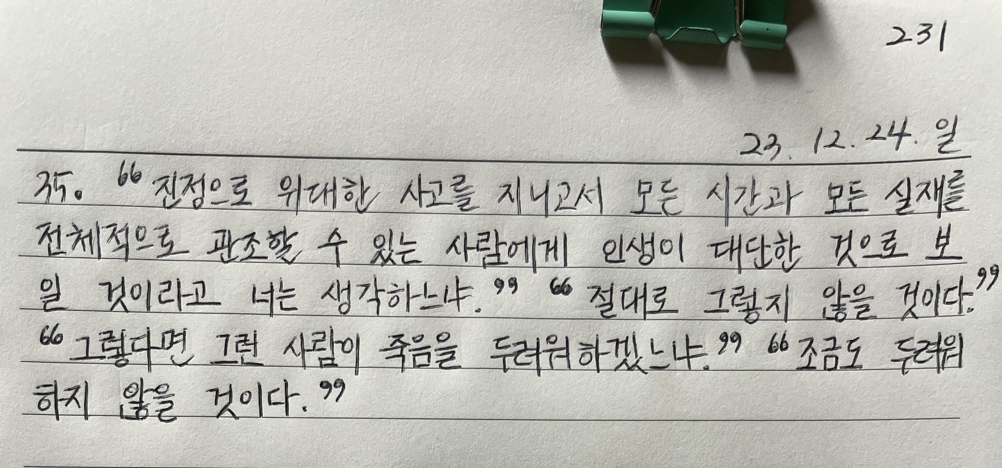 231
23. 12. 24. 일
35. “진정으로 위대한 사고를 지니고서 모든 시간과 모든 실재를
전체적으로 관조할 수 있는 사람에게 인생이 대단한 것으로 보
일 것이라고 너는 생각하느냐.” “절대로 그렇지 않을 것이다.”
“그렇다면 그런 사람이 죽음을 두려워하겠느냐.” “조금도 두려워
하지 않을 것이다.”